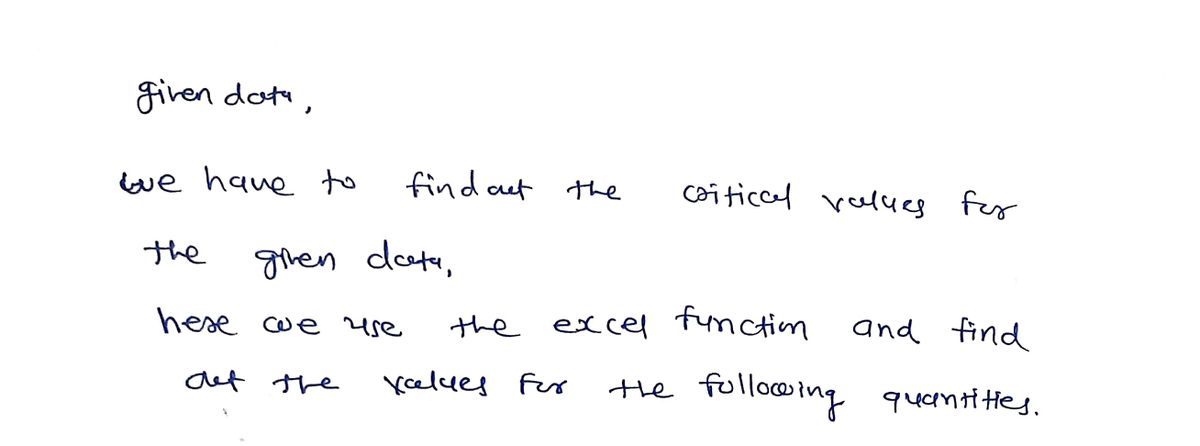 given data,
we have to find out the critical values for
the given data,
here we use the excel function and find
out the values for the following quantities.